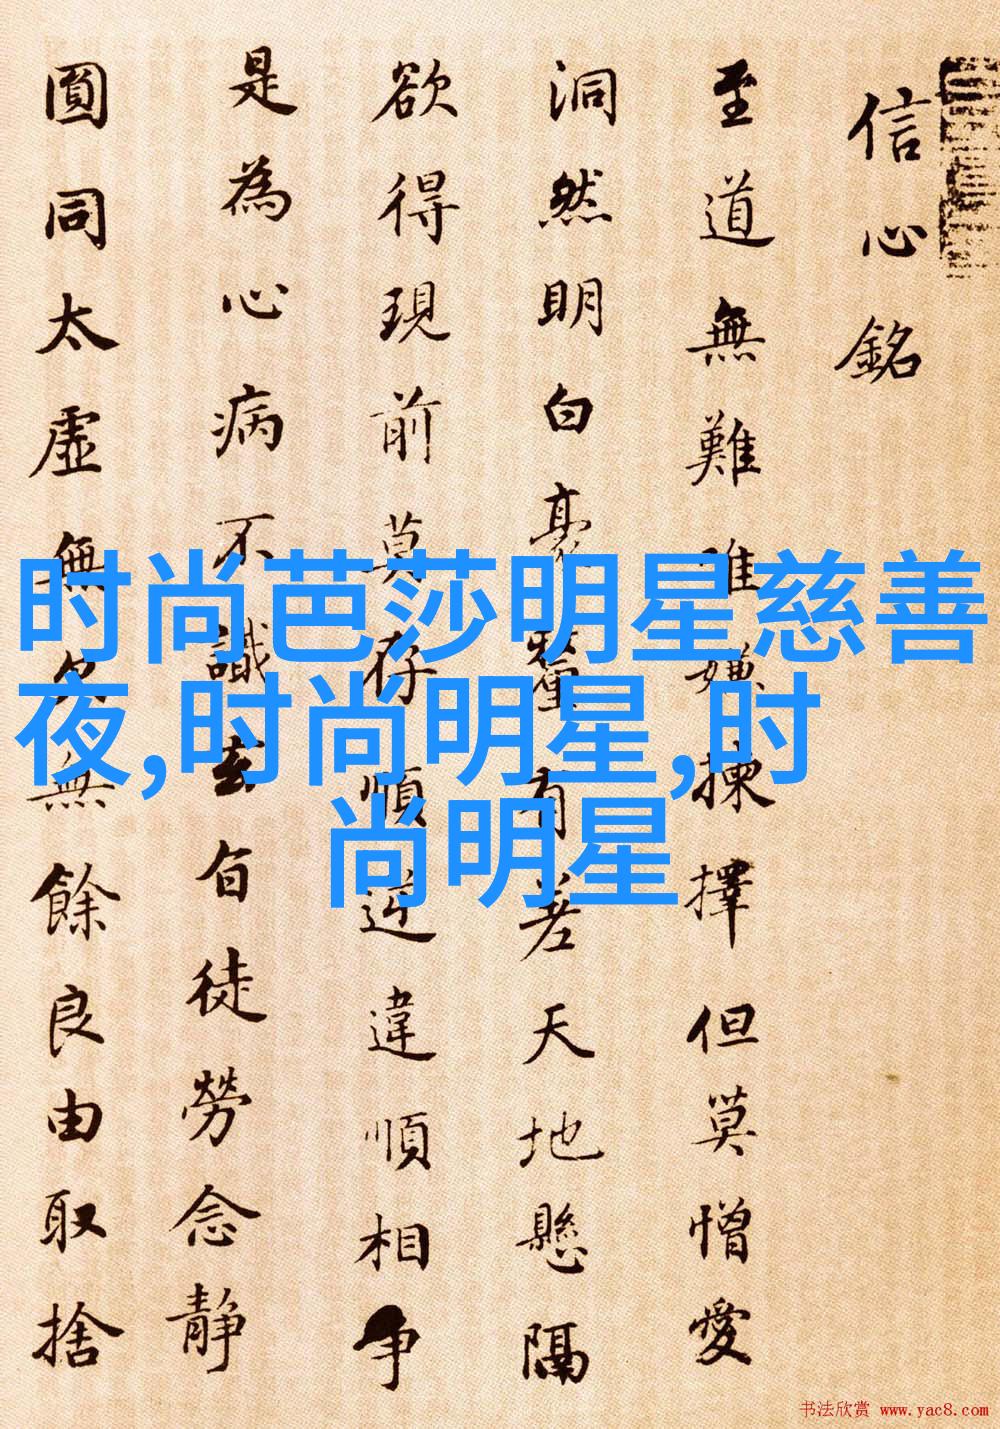 信心銘
至道無難唯嫌揀擇但莫憎愛
洞然明白毫釐有差天地懸隔
欲得現前莫存順逆違順相爭
是為心病不識玄旨徒勞念靜
圓同太虛無欠無餘良由取捨
时尚芭莎明星慈善
夜,时尚明星,时
尚明星
书法欣赏 www.yac8.com